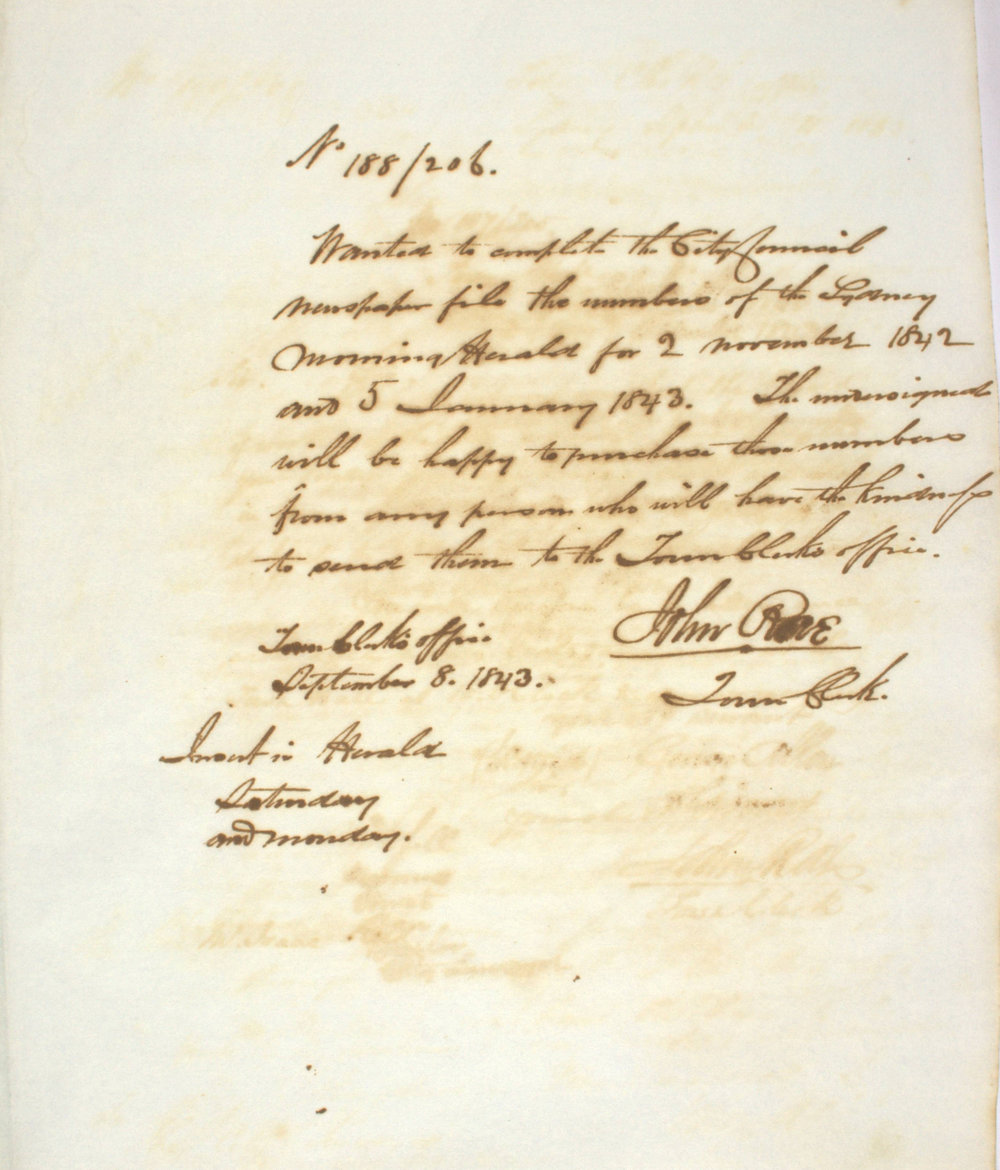 No 188/206.
Wanted to complete the City Council
newspaper file the numbers of the Sydney
Morning Herald for 2 November 1842
and 5 January 1843. The undersigned
will be happy to purchase these numbers
from any person who will have the kindness
to send them to the Town Clerk's office.
John Rae
Town Clerk's office
September 8. 1843.
Town Clerk.
Insert in Herald
Saturday
and Monday.